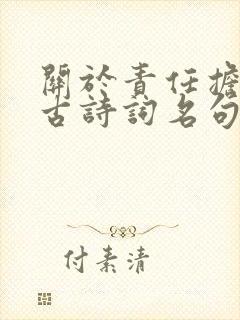 關於責任擔
古詩詞名句
付素清